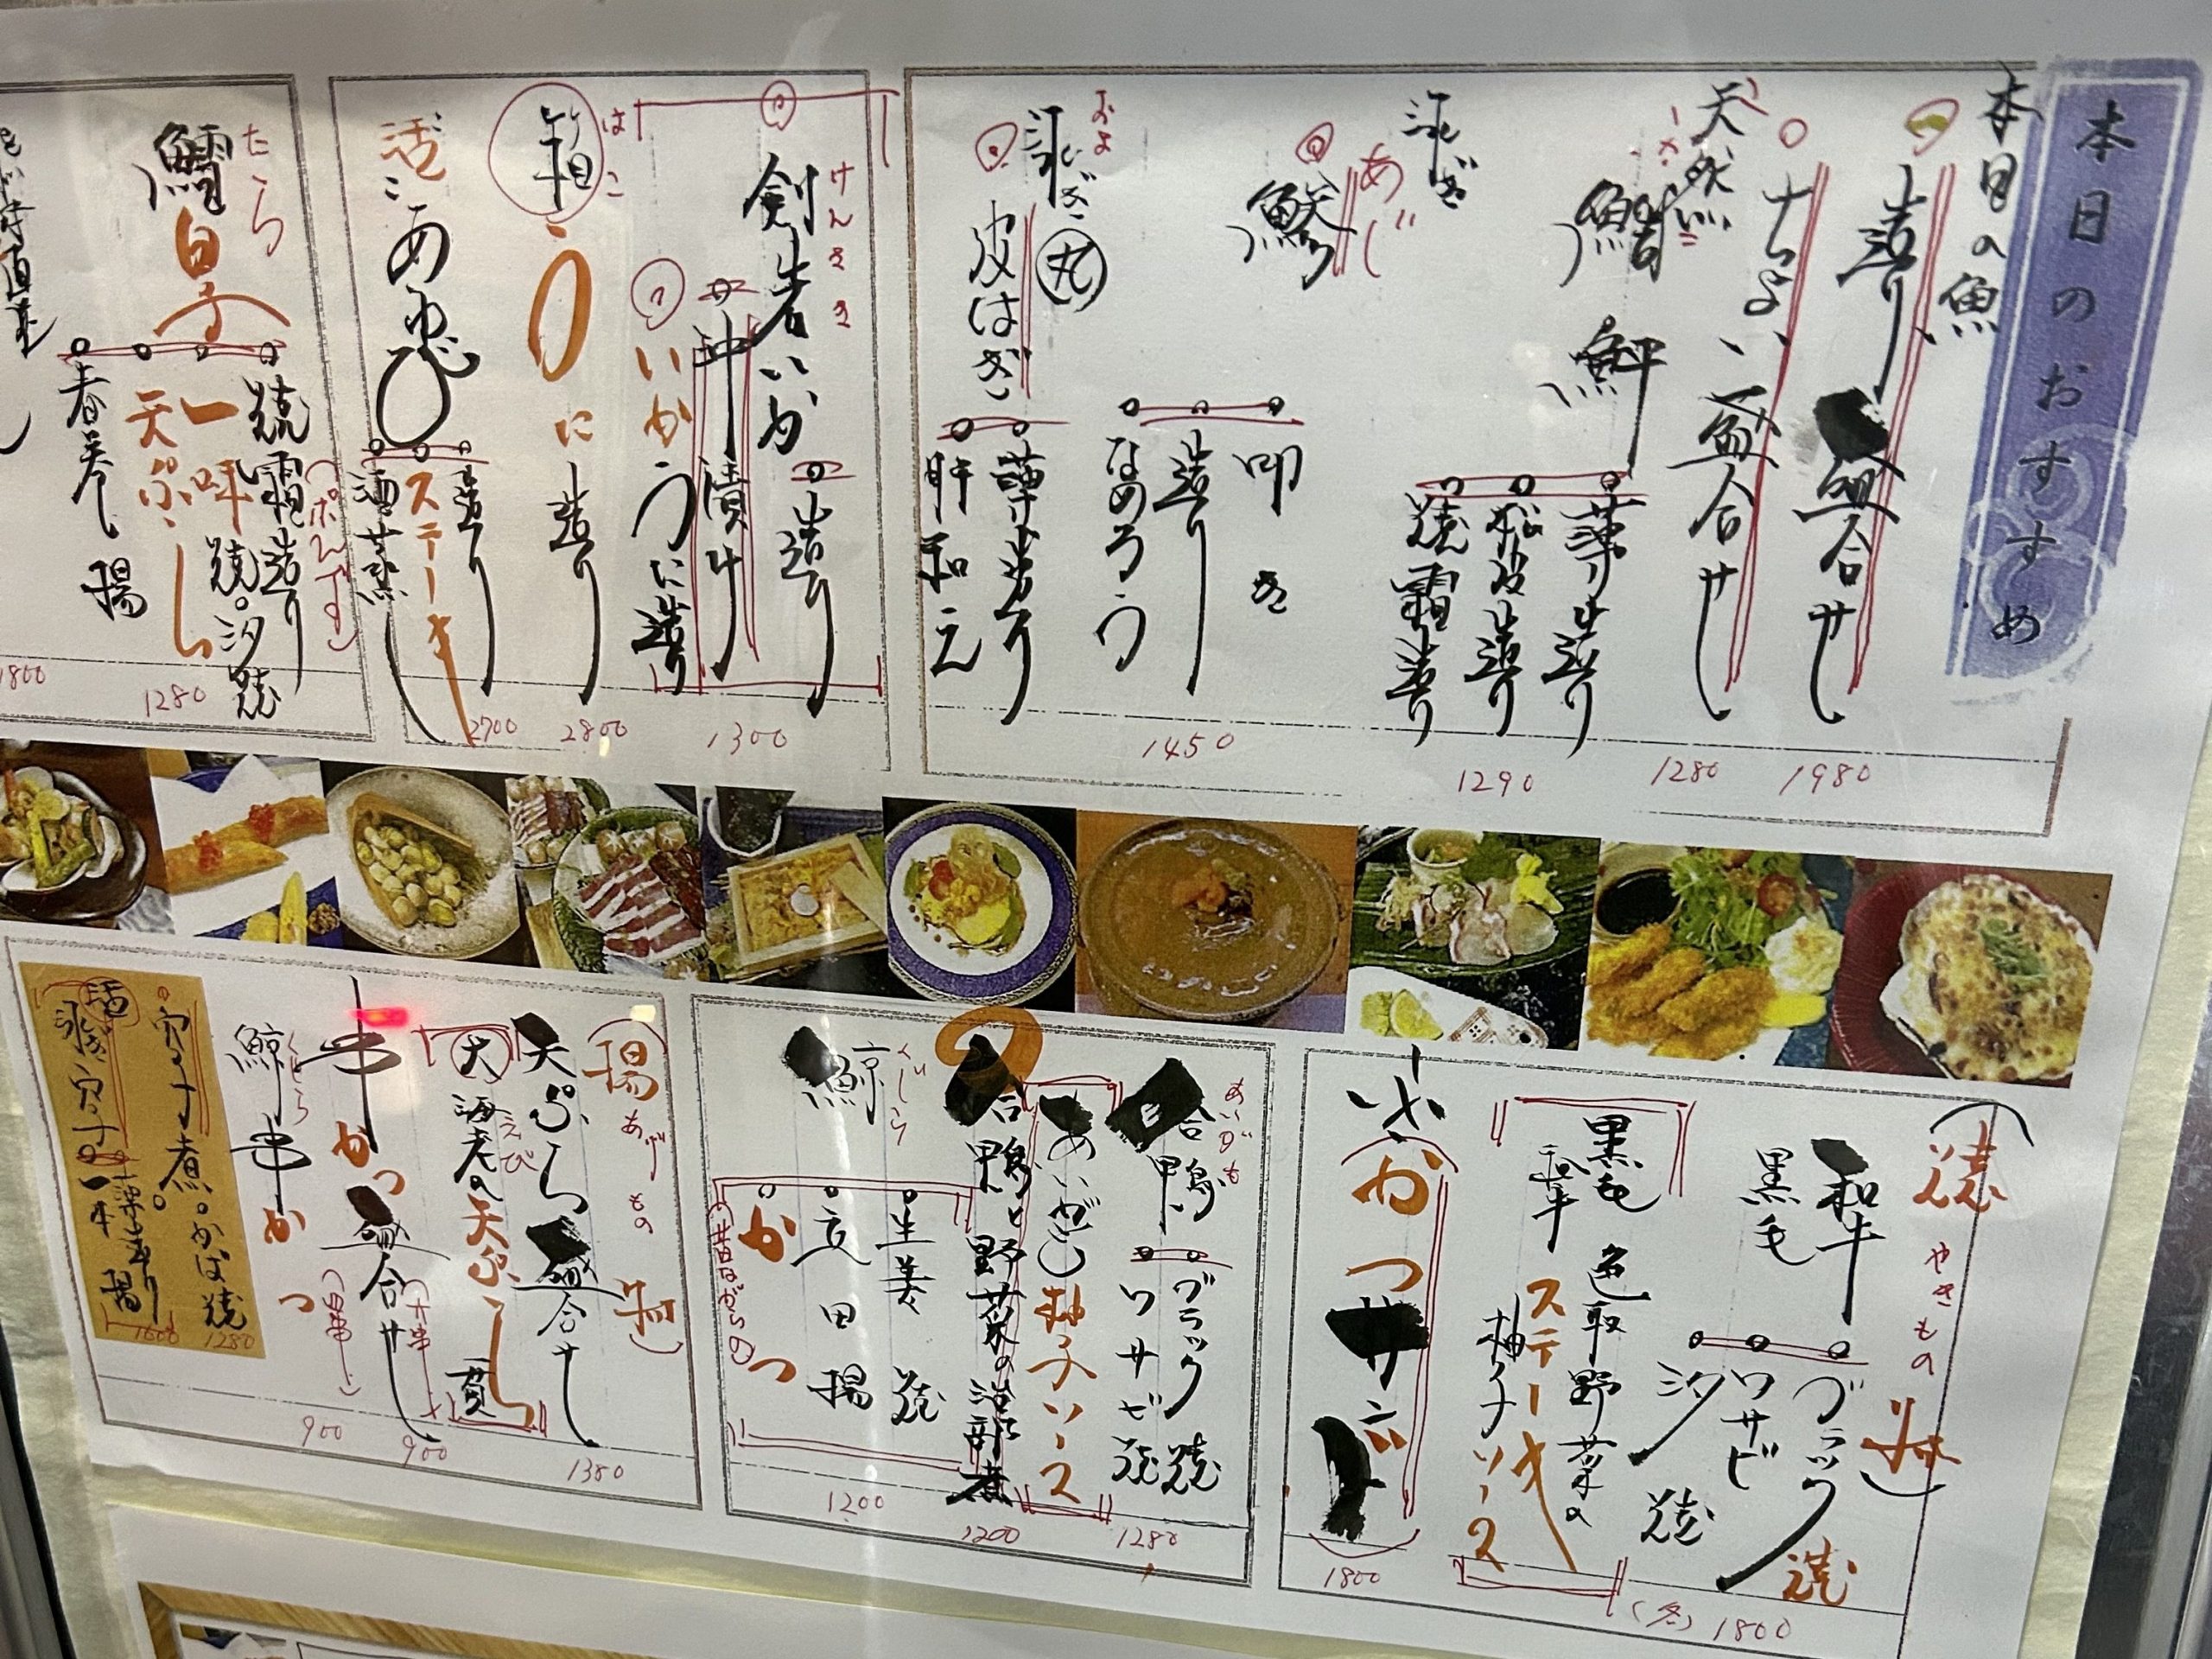 本日のおすすめ
本日の魚
造り盛合せ
1980
ちょい盛合せ
1280
天然
鯛
薄造り
松皮造り
焼霜造り
1290
泳ぎ
あじ
鯵
叩き
造り
なめろう
1450
およ
泳ぎ
丸
皮はぎ
薄造り
肝和え
けんさき
剣先いか
造り
沖漬け
いかうに造り
1300
はこ
箱うに造り
2800
活あわび
造り
ステーキ
酒蒸し
2700
たら
鱈白子
焼霜造り
(ポンズ)
一味焼。汐焼
天ぷら
春巻揚
1280
1800
焼
やきもの
黒毛
和牛
ブラック焼
ワサビ焼
汐焼
(各)1800
黒毛和牛
色取野菜の
ステーキ
柚子ソース
かつサンド
1800
あいがも
合鴨
ブラック焼
ワサビ焼
1280
柚子ソース
合鴨と野菜の治部煮
1200
くじら
鯨
生姜焼
立田揚
かつ
(昔ながらの)
1200
揚
あげもの
天ぷら盛合せ
1380
大海老の天ぷら
えび
一貫
串かつ盛合せ
900
くじら
鯨串かつ
900
穴子煮。かば焼
1280
活
泳ぎ穴子
薄造り
一本揚
1600